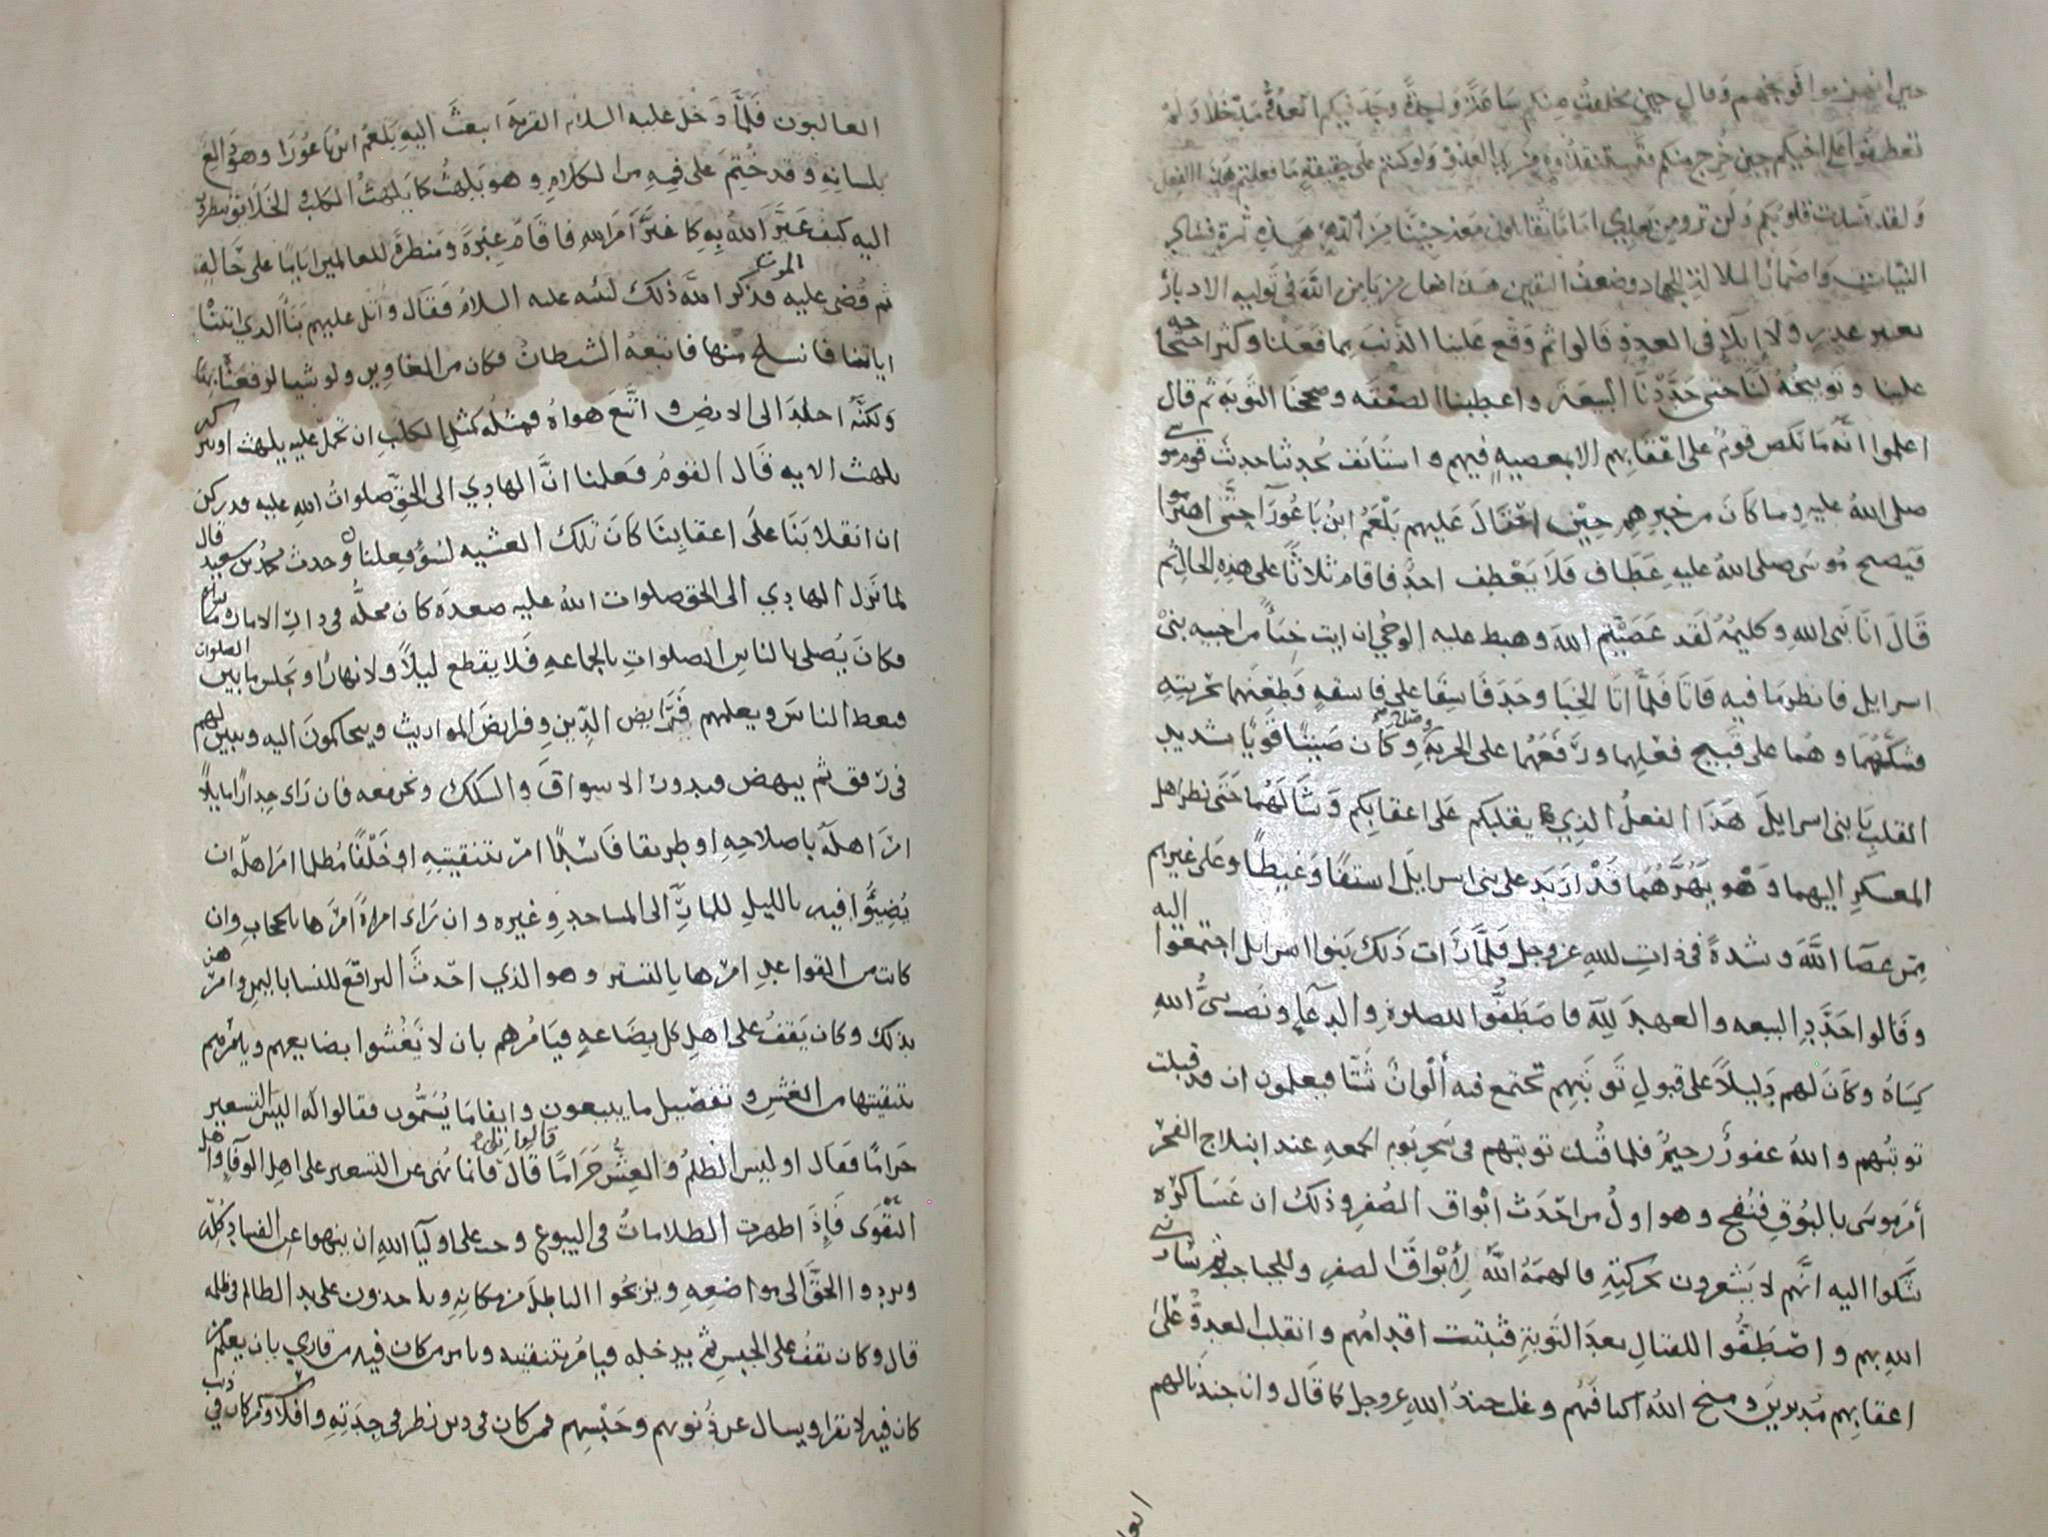 حين انهزموا فوبخهم وقال حين تخلفت عنكم ساعة واحدة وجد فيكم العدو مدخلا ولم
تعطفوا على اخيكم حين خرج منكم تستنقذوه من يد العدو ولو كنتم على حقيقة ما فعلتم هذا الفعل
ولقد فسدت قلوبكم ولن تروا من بعدي اماما تقاتلون معه
النيات واضمار الملالة للجهاد وضعف اليقين هذا انهار من باس الله في تولية الادبار
بغير عذر ولا ابلا في العدو قالوا ثم وقع علينا الذنب بما فعلنا وكثر احتجاجه
علينا وتوبيخه لنا حتى جددنا البيعة واعطينا الصفقه وصححنا التوبة ثم قال
اعلموا انه ما نكص قوم على اعقابهم الا بمعصية فيهم واستانف يحدثنا حديث قوم موسى
صلى الله عليه وما كان من خبرهم حين احتال عليهم بلعم ابن باعورا حتى اهتزموا
فيصيح موسى صلى الله عليه عطاف فلا يعطف احد فاقام ثلاثا على هذه الحال ثم
قال انا نبي الله وكليمه لقد عصيتم الله وهبط عليه الوحي ان ايت خبأ من اخبيه بني
اسرايل فانظر ما فيه فاتا فلما اتا الخبا وجد فاسقا على فاسقه فطعنهما بحربته
فشكهما وهما على قبيح فعلهما ورفعهما على الحربة وكان صيتا قويا شديد
القلب يا بني اسرايل هذا الفعل الذي يقلبكم على اعقابكم وشالهما حتى نظر اهل
المعسكر اليهما وهو يهزهما قد ازبد على بني اسرايل اسفا وغيظا وعلى غيرهم
ممن عصا الله وشدة في ذات الله عز وجل فلما رات ذلك بنوا اسرايل اجتمعوا اليه
وقالوا جدد البيعه والعهد لله فاصطفوا للصلوة والدعاء ونصب نبي الله
كساه وكان لهم دليلا على قبول توبتهم تجتمع فيه الوان شتا فيعلمون ان قد قبلت
توبتهم والله غفور رحيم فلما قبلت توبتهم في سحر يوم الجمعه عند ابتلاج الفجر
امر موسى بالبوق فنفخ وهو اول من احدث ابواق الصفر وذلك ان عساكره
شكوا اليه انهم لا يشعرون بحركته فالهمه الله لابواق الصفر
الله بهم واصطفوا للقتال بعد التوبة فثبتت اقدامهم وانقلب العدو على
اعقابهم مدبرين ومنح الله اكتافهم وغلب جند الله عز وجل كما قال وان جندنا لهم
الغالبون فلما دخل عليه السلام القرية ابعث اليه بلعم ابن باعورا وهو دالع
بلسانه وقد ختم على فمه من الكلام وهو يلهث كما يلهث الكلب والخلايق ينظرون
اليه كيف غير الله به كما غير امر الله فاقام عبرة ومنظرة للعالمين اياما على حاله
ثم قضي عليه الموت فذكر الله ذلك لنبيه عليه السلام فقال واتل عليهم نبأ الذي اتيناه
اياتنا فانسلخ منها فاتبعه الشيطان فكان من الغاوين ولو شينا لرفعناه بها
ولكنه اخلد الى الارض واتبع هواه فمثله كمثل الكلب ان تحمل عليه يلهث او تتركه
يلهث الايه قال القوم فعلمنا ان الهادي الى الحق صلوات الله عليه قد ركن
ان انقلابنا على اعقابنا كان تلك العشيه لسوء فعلنا وحدث محمد بن سعيد قال
لما نزل الهادي الى الحق صلوات الله عليه صعدة كان محله في دار الاماره
فكان يصلي بالناس الصلوات بالجماعه فلا يقطع ليلا ولا نهارا ويجلس ما بين الصلوات
فيعظ الناس ويعلمهم فرايض الدين وفرايض المواريث ويتحاكمون اليه ويبين لهم
في رفق ثم ينهض فيدور الاسواق والسكك ونحن معه فان راى جدارا مايلا
امر اهله باصلاحه او طريقا فاسدا امر بتنقيته او خلفا مظلما امر اهله ان
يضيئوا فيه بالليل للمار الى المساجد وغيره وان راى امراة امرها بالحجاب وان
كانت من القواعد امرها بالتستر وهو الذي احدث البراقع للنسا باليمن وامرهن
بذلك وكان يقف على اهل كل بضاعه فيامرهم بان لا يغشوا بضايعهم ويامرهم
بتنقيتها من الغش وتفضيل ما يبيعون وايفا ما يسمون فقالوا له اليس التسعير
حراما فقال او ليس الظلم والغش حراما قالوا بلى قال فانما نهى عن التسعير على اهل الوفاء واهل
التقوى فاذا ظهرت الظلامات في البيوع وجب على اوليآ الله ان ينهوا عن الفساد كله
ويردوا الحق الى مواضعه ويزيحوا الباطل من مكانه وياخذون على يد الظالم في ظلمه
قال وكان يقف على الحبس ثم يدخله فيامر بتنقيته ويامر من كان فيه من قاري بان يعلم من
كان فيه لا يقرا ويسال عن ذنوبهم وحبسهم فمن كان في دين نظر في جدته وافلاسه ومن كان في ذنب